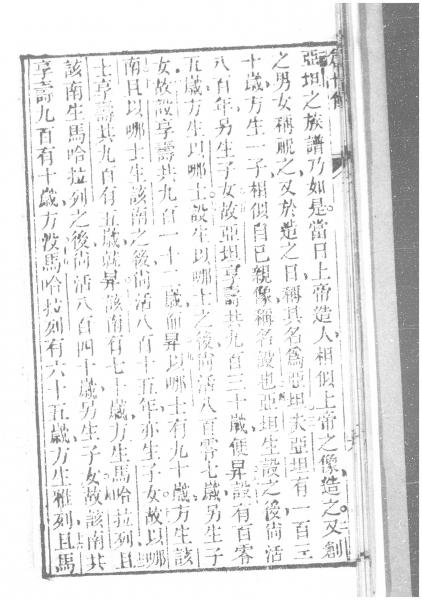 第五傳
亞坦之族譜乃如是當日上帝造人相似上帝之像造之又創
之男女稱呢之又於造之日稱其名為亞坦夫亞坦有一百三
十歲方生一子相似自己親像稱名設也亞坦生設之後尚活
八百年另生子女故亞坦享壽共九百三十歲便昇設有百零
五歲方生以哪士設生以哪士之後尚活八百零七歲另生子
女故設享壽共九百一十二歲而昇以哪士有九十歲方生該
南且以哪士生該南之後尚活八百十五年亦生子女故以哪
士享壽共九百有五歲就昇該南有七十歲方生馬哈拉列且
該南生馬哈拉列之後尚活八百四十歲另生子女故該南共
享壽九百有十歲方沒馬哈拉列有六十五歲方生雅列且馬